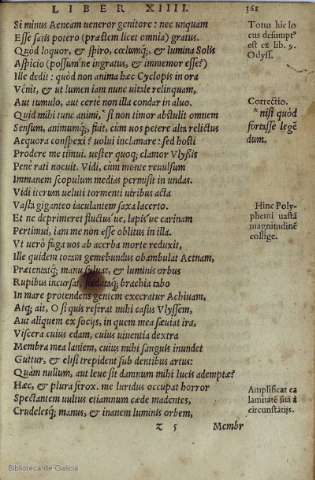 LIBER XIIII.
361
Si minus Aeneam ueneror genitore: nec unquam
Esse satis potero (præstem licet omnia) gratus.
Quòd loquor, & spiro, cœlumq;, & lumina Solis
Aspicio (possum'ne ingratus, & immemor esse?)
Ille dedit: quòd non anima hæc Cyclopis in ora
Venit, & ut lumen iam nunc uitale relinquam,
Aut tumulo, aut certè non illa condar in aluo.
Quid mihi tunc animi, * si non timor abstulit omnem
Sensum, animumq;, fuit, cùm uos petere alta relictus
Aequora conspexi? uolui inclamare: sed hosti
Prodere me timui. uestor quoq; clamor Vlyssis
Penè rati nocuit. Vidi, cùm monte reuulsum
Immanem scopulum medias permisit in undas.
Vidi iterum ueluti tormenti uiribus acta
Vasta giganteo iaculantem saxa lacerto.
Et ne deprimeret fluctus'ue, lapis'ue carinam
Pertimui, iam me non esse oblitus in illa.
Vt uerò fuga uos ab acerba morte reduxit,
Ille quidem totam gemebundus obambulat Aetnam,
Prætentatq; manu syluas, & luminis orbus
Rupibus incursat, fœdataq; brachia tabo
In mare protendens gentem execratur Achiuam,
Atq; ait, O si quis referat mihi casus Vlyssem,
Aut aliquem ex socijs, in quem mea sæuiat ira,
Viscera cuius edam, cuius uiuentia dextra
Membra mea laniem, cuius mihi sanguis inundet
Guttur, & elisi trepident sub dentibus artus:
Quàm nullum, aut leue sit damnum mihi lucis ademptæ?
Hæc, & plura ferox. me luridus occupat horror
Spectantem uultus etiamnum cæde madentes,
Crudelesq; manus, & inanem luminis orbem,
z 5
Membr
Totus hic lo
cus desumpt°
est ex lib. 9.
Odyss.
Correctio.
* nisi quòd
fortasse legē
dum.
Hinc Poly-
phemi uastā
magnitudinē
collige.
Amplificat ca
lamitatē suā à
circūstātijs.
Biblioteca de Galicia